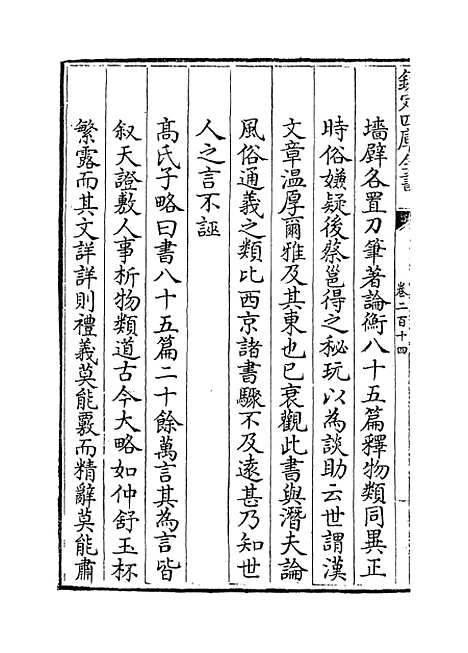 欽定四庫全書
卷二百十四
墻壁各置刀筆著論衡八十五篇釋物類同異正
時俗嫌疑後蔡邕得之秘玩以為談助云世謂漢
文章温厚爾雅及其東也已衰觀此書與潛夫論
風俗通義之類比西京諸書驟不及逺甚乃知世
人之言不誣
髙氏子略曰書八十五篇二十餘萬言其為言皆
叙天證敷人事析物類道古今大略如仲舒玉杯
繁露而其文詳詳則禮義莫能覈而精辭莫能肅